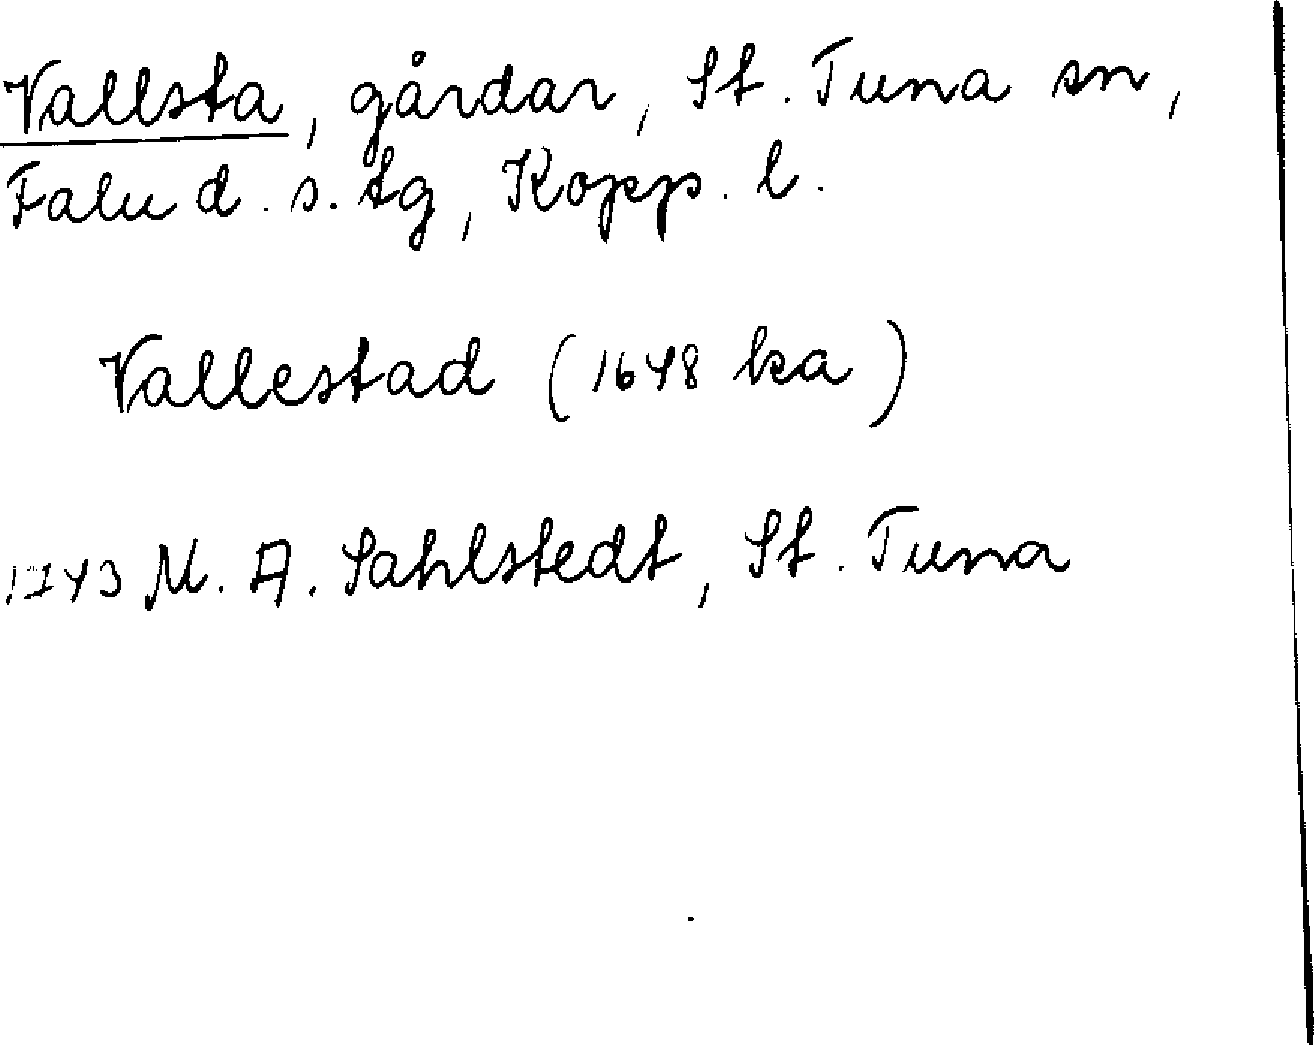 Vallsta, gårdar, St. Tuna sn,
Falu d. s. tg, Kopp. l.
Vallestad (1648 ka)
1743 M. A. Sahlstedt, St. Tuna